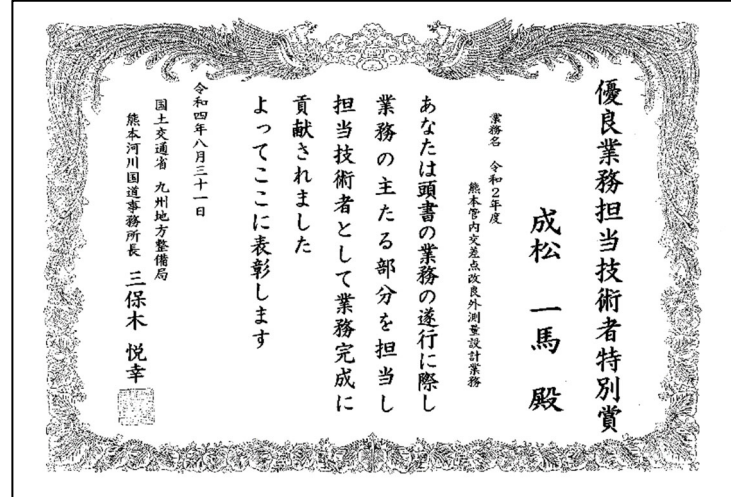 優良業務担当技術者特別賞
成松 一馬 殿
業務名 令和2年度
熊本管内交差点改良外測量設計業務
あなたは頭書の業務の遂行に際し
業務の主たる部分を担当し
担当技術者として業務完成に
貢献されました
よってここに表彰します
令和四年八月三十一日
国土交通省 九州地方整備局
熊本河川国道事務所長 三保木 悦幸